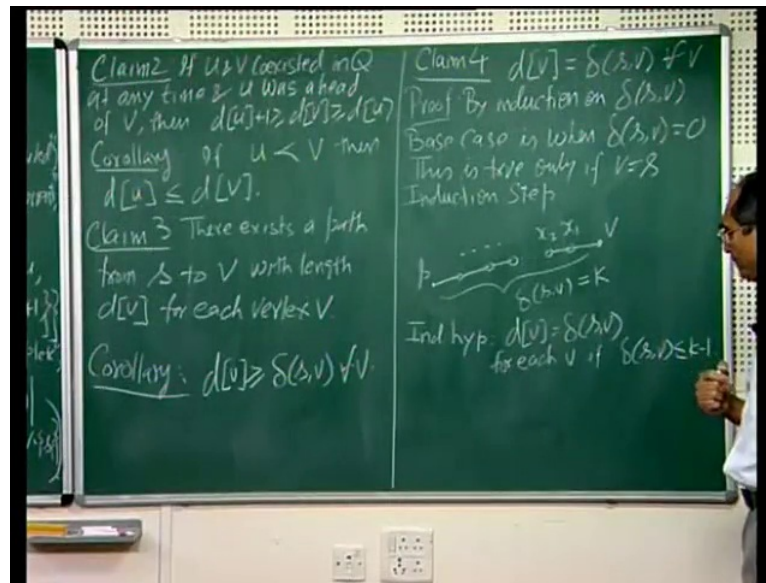 Claim 2 If u & v coexisted in Q
at any time & u was ahead
of v, then d[u]+1 ≥ d[v] ≥ d[u]
Corollary If u < v then
d[u] ≤ d[v].
Claim 3 There exists a path
from s to v with length
d[v] for each vertex v.
Corollary: d[v] ≥ δ(s,v) ∀ v.
Claim 4 d[v] = δ(s,v) ∀ v
Proof By induction on δ(s,v)
Base case is when δ(s,v) = 0
This is true only if v = s
Induction Step
x₂ x₁ v
....
δ(s,v) = k
Ind hyp: d[v] = δ(s,v)
for each v if δ(s,v) ≤ k-1